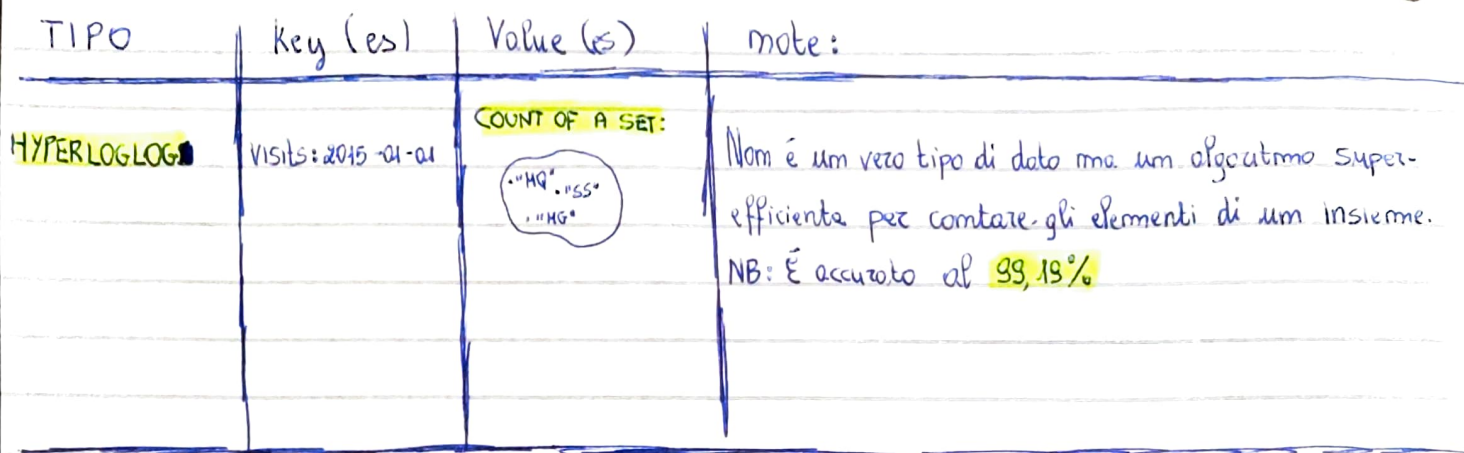 TIPO Key (es) Value (es) note:
HYPERLOGLOG
Visits: 2015-01-01
COUNT OF A SET:
."MQ" ."SS"
."MG"
Non é un vero tipo di dato ma un algoritmo super-
efficiente per contare gli elementi di un insieme.
NB: É accurato al 99,19%